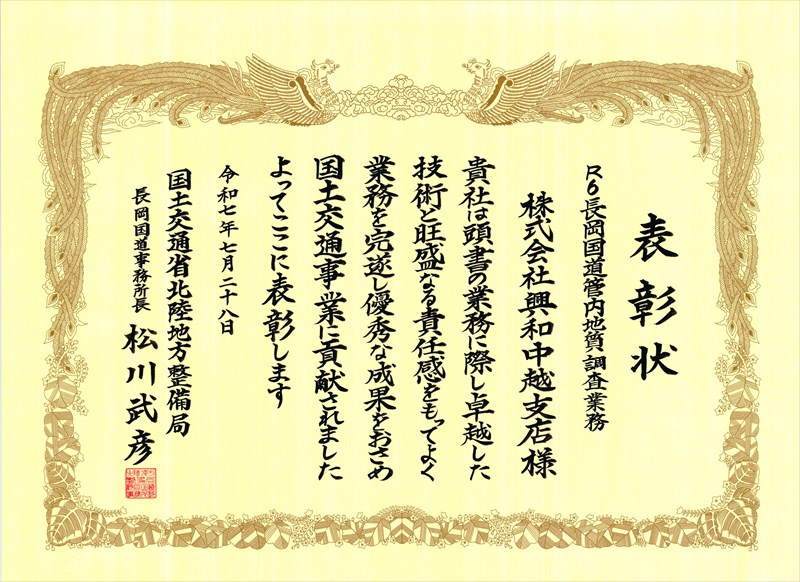 表彰状
R6長岡国道管内地質調査業務
株式会社興和中越支店様
貴社は頭書の業務に際し卓越した
技術と旺盛なる責任感をもってよく
業務を完遂し優秀な成果をおさめ
国土交通事業に貢献されました
よってここに表彰します
令和七年七月二十八日
国土交通省北陸地方整備局
長岡国道事務所長
松川武彦